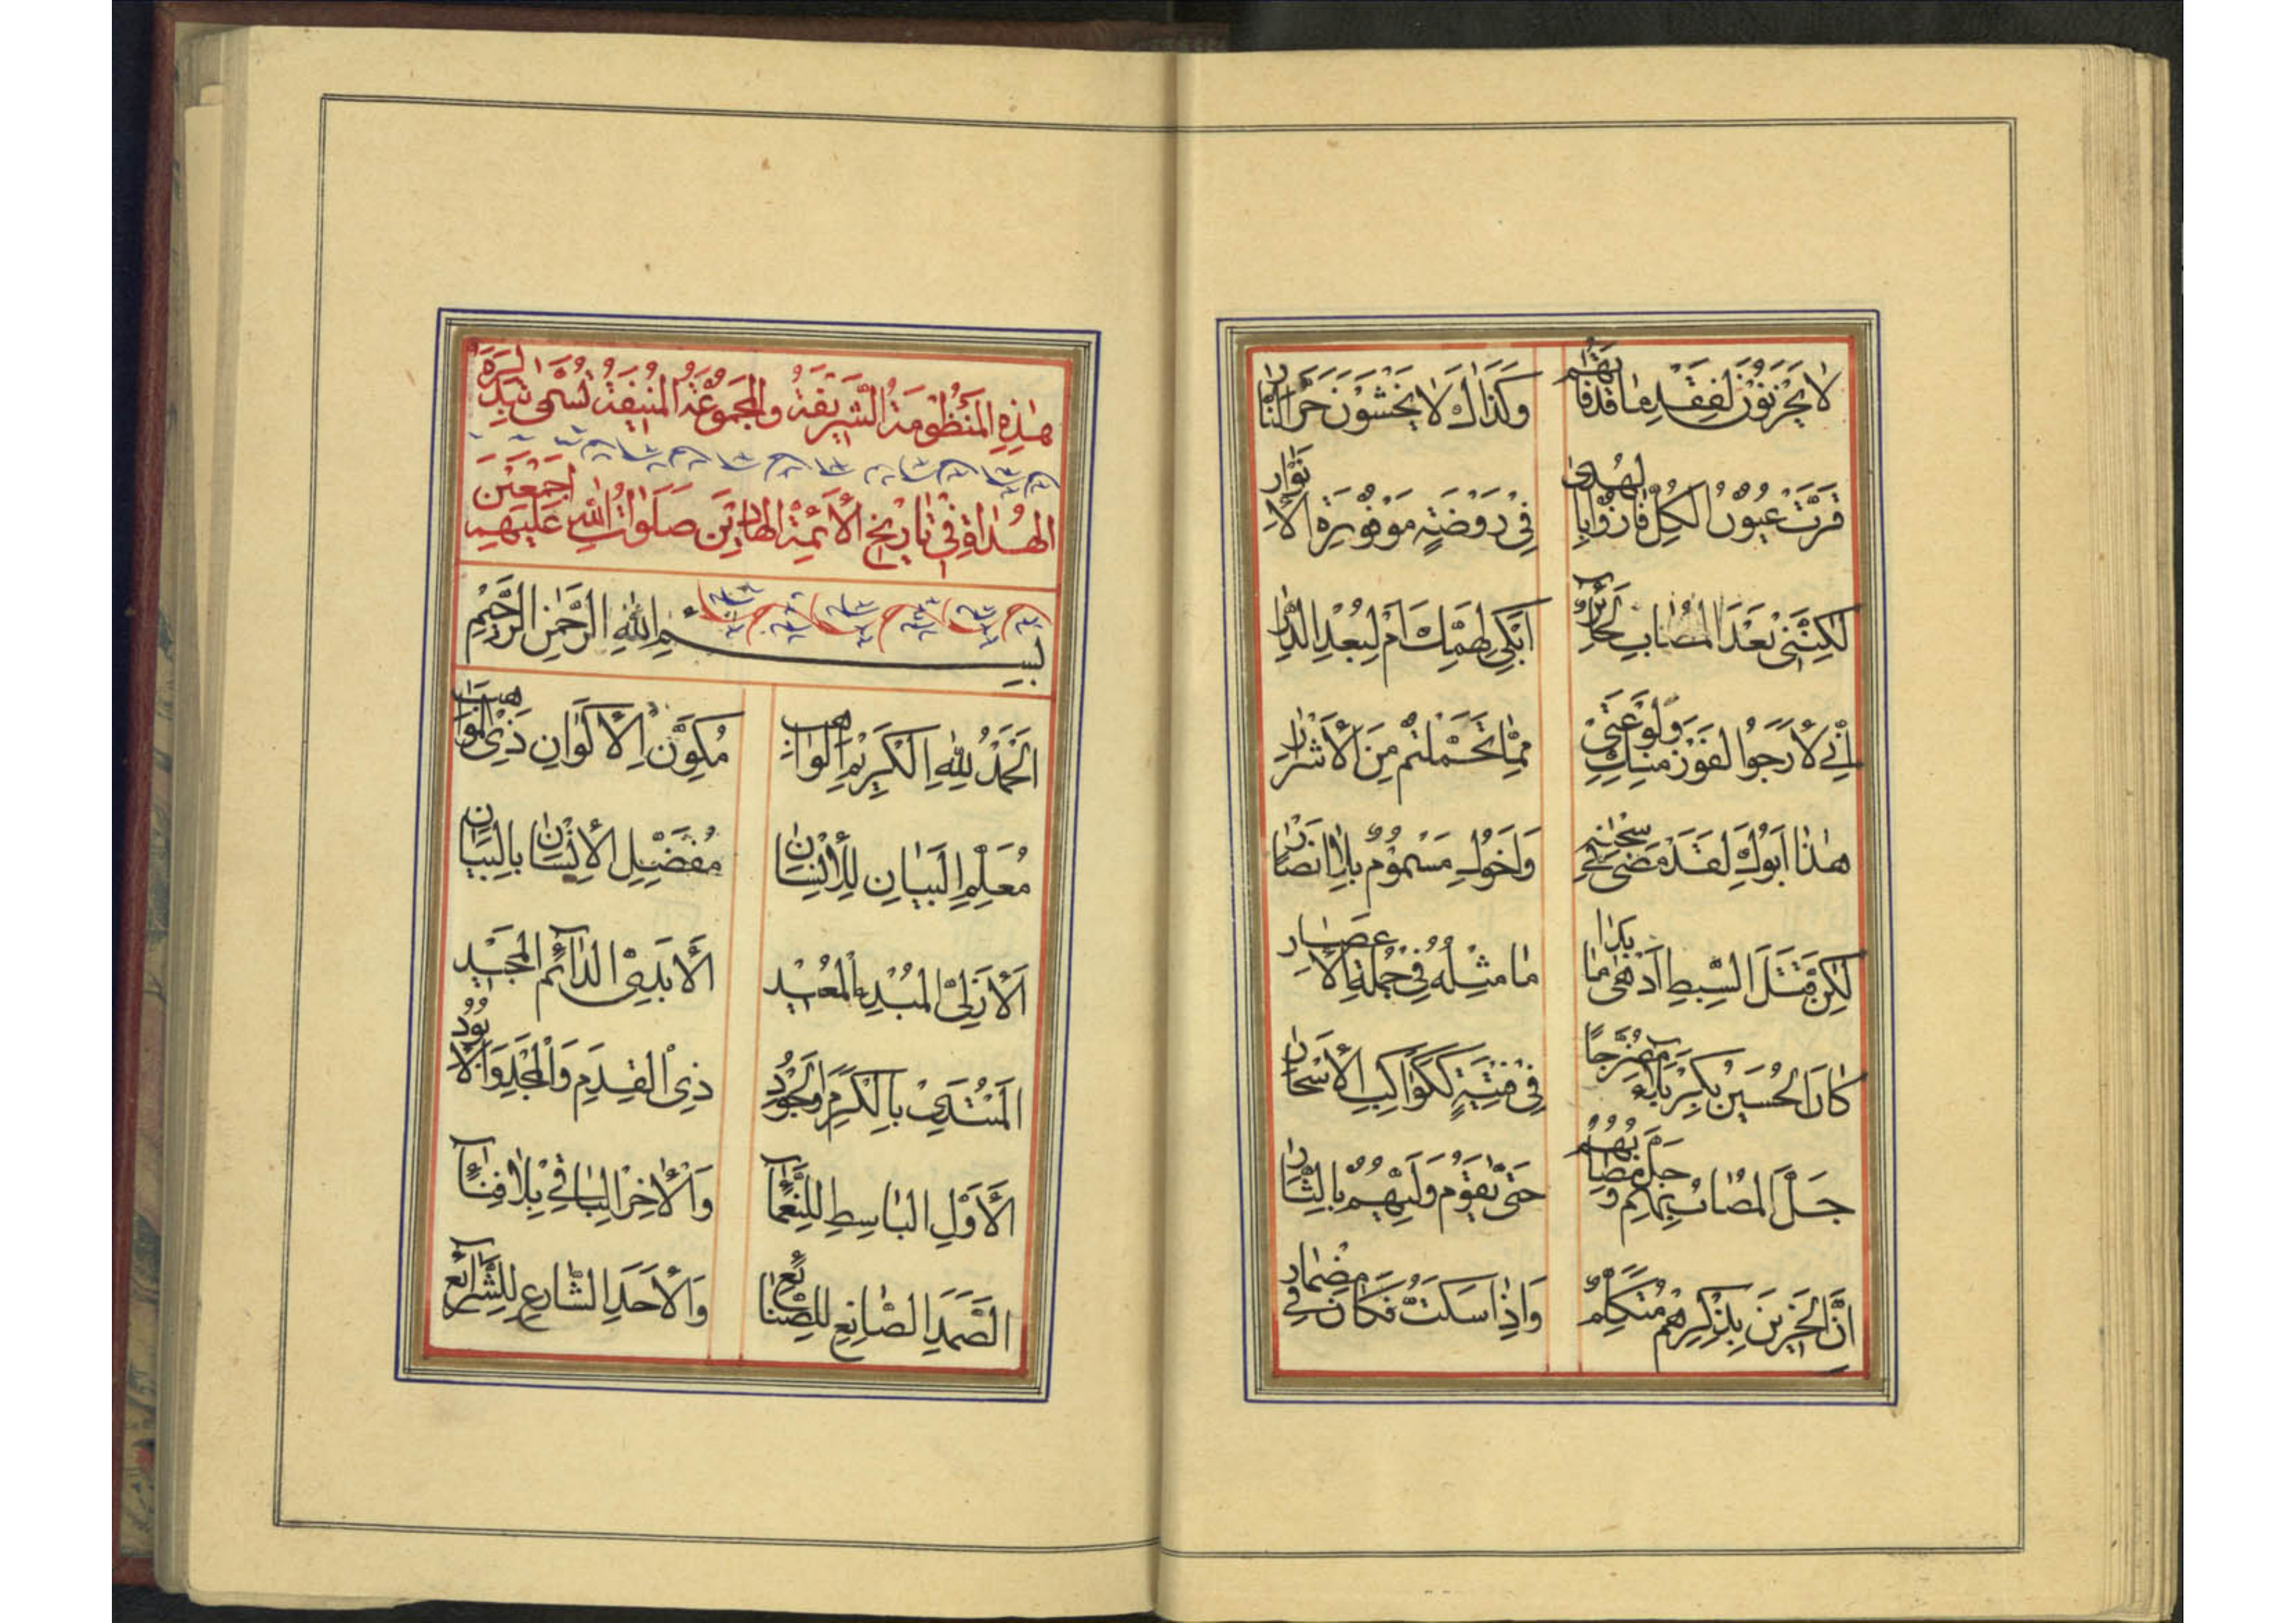 لا يَحْزَنُونَ لِفَقْدِ مٰا قَدْ فٰاتَهُمْ وَكَذَاكَ لَا يَخْشَوْنَ حَرَّ النّٰارِ
قَرَّتْ عُيُونُ الكُلِّ فٰازُوا بِالهُدىٰ فِي رَوْضَةٍ مَوْفُورَةِ الأَنْوٰارِ
لٰكِنَّنِي بَعْدَ المُصٰابِ لَحٰائِرٌ أَبْكِي لِهَمِّكَ أَمْ لِبُعْدِ الدّٰارِ
إِنّي لَأَرْجُوا الفَوْزَ مِنْكِ وَلَوْعَتِي مِمّٰا تَحَمَّلْتُمْ مِنَ الأَشْرٰارِ
هٰذٰا أَبُوكِ لَقَدْ مَضىٰ فِي سِجْنِهِ وَأَخُوكِ مَسْمُومٌ بِلاٰ أَنْصٰارِ
لٰكِنَّ قَتْلَ السِّبْطِ أَدْهىٰ مٰا بَدٰا مٰا مِثْلُهُ فِي جُمْلَةِ الأَعْصٰارِ
كٰانَ الحُسَيْنُ بِكَرْبَلاٰءَ مُضَرَّجًا فِي فِتْيَةٍ كَكَوٰاكِبِ الأَسْحٰارِ
جَلَّ المُصٰابُ بِهِمْ وَجَلَّ مُصٰابُهُمْ حَتّىٰ يَقُومَ وَلِيُّهُمْ بِالثّٰارِ
إِنَّ الحَزِينَ بِذِكْرِهِمْ مُتَكَلِّمٌ وَإِذٰا سَكَتُّ فَكٰانَ فِي مِضْمٰارِ
هٰذِهِ المَنْظُومَةُ الشَّرِيفَةُ والمَجْمُوعَةُ المُنِيفَةُ تُسَمّىٰ بِنُبَذِ السِّيَرَةِ
الهُدٰاةِ فِي تٰارِيْخِ الأَئِمَّةِ الهٰادِيْنَ صَلَوٰاتُ اللّٰهِ عَلَيْهِمْ أَجْمَعِيْنَ
بِسْمِ اللّٰهِ الرَّحْمٰنِ الرَّحِيْمِ
اَلْحَمْدُ لِلّٰهِ الكَرِيْمِ الوٰاهِبِ مُكَوِّنِ الأَكْوٰانِ ذِي المَوٰاهِبِ
مُعَلِّمِ البَيٰانِ لِلْإِنْسٰانِ مُفَضِّلِ الإِنْسٰانِ بِالبَيٰانِ
اَلأَزَلِيِّ المُبْدِءِ المُعِيْدِ الأَبَدِيِّ الدّٰائِمِ المَجِيْدِ
المُبْتَدِي بِالكَرَمِ وَالجُوْدِ ذِي القِدَمِ وَالمَجْدِ وَالوُجُوْدِ
اَلأَوَّلِ البٰاسِطِ لِلنَّعْمٰآءِ وَالآخِرِ البٰاقِي بِلاٰ فَنٰآءِ
الصَّمَدِ الصّٰانِعِ لِلصَّنٰائِعِ وَالأَحَدِ الشّٰارِعِ لِلشَّرٰآئِعِ